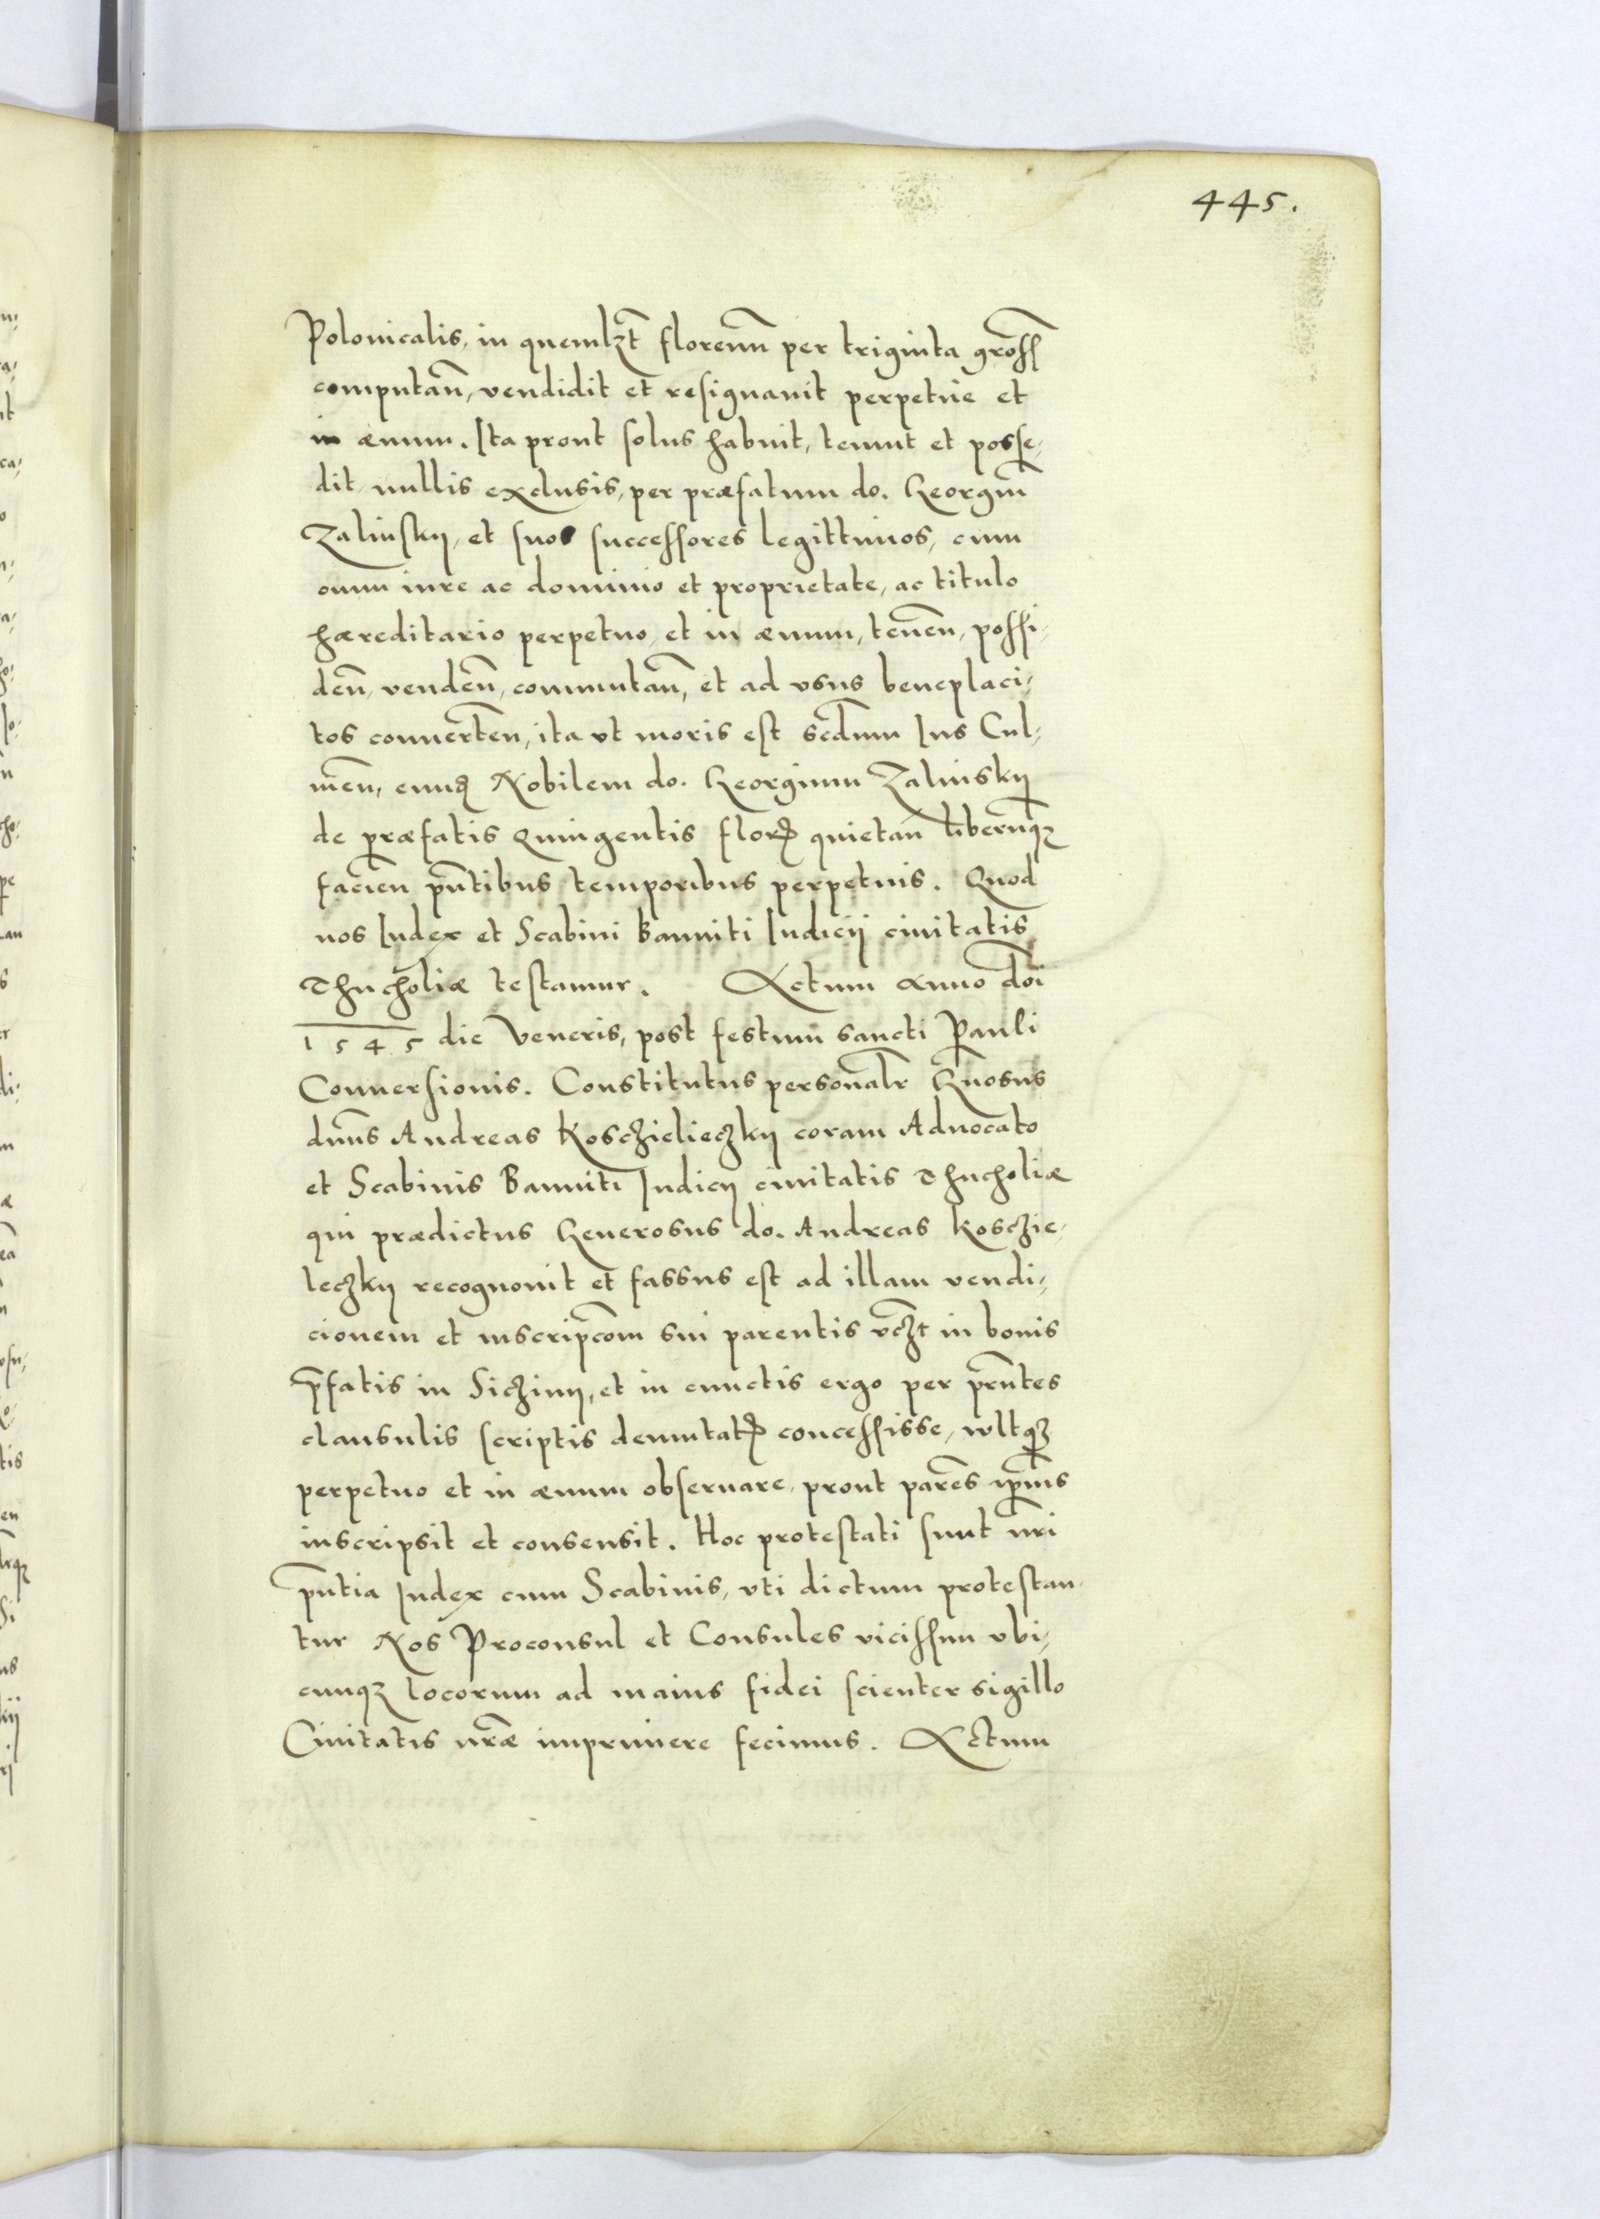 445.
Polonicalis, in quemlꝫt florenũ per triginta grossͥ
computañ, vendidit et resignauit perpetue et
in æuum. Ita prout solus habuit, tenuit et posse,
dit, nullis exclusis, per præfatum do. Georgiũ
Zalinskij, et suos successores legittimos, cum
omni iure ac dominio et proprietate, ac titulo
hæreditario perpetuo et in æuum, teneñ, possi,
deñ, vendeñ, commutañ, et ad vsus beneplaci,
tos conuerteñ, ita vt moris est secdum Ius Cul,
meñ, eundꝫ Nobilem do. Georgium Zalinskij
de præfatis Quingentis floren̄ quietañ liberũqꝫ
facieñ pñtibus temporibus perpetuis. Quod
nos Iudex et Scabini Banniti Iudicii ciuitatis
Thucholiæ testamur. Actum Anno dõi
1545 die Veneris, post festum sancti Pauli
Conuersionis. Constitutus personalr̃ Gñosus
dñus Andreas Kosczielieczkij coram Aduocato
et Scabinis Banniti Iudicij ciuitatis Thucholiæ
qui prædictus Generosus do. Andreas Kosczie,
leczkij recognouit et fassus est ad illam vendi,
cionem et inscripcõm sui parentis vcꝫt in bonis
p̃fatis in Siczinij, et in cunctis ergo per pñtes
clausulis scriptis denotatꝭ concessisse, vultqꝫ
perpetuo et in æuum obseruare, prout pares̃ ip̃ius
inscripsit et consensit. Hoc protestati sunt nr̃i
pñtia Iudex cum Scabinis, vti dictum protestan,
tur Nos Proconsul et Consules vicissim vbi,
cunqꝫ locorum ad maius fidei scienter sigillo
Ciuitatis nr̃æ imprimere fecimus. Actum